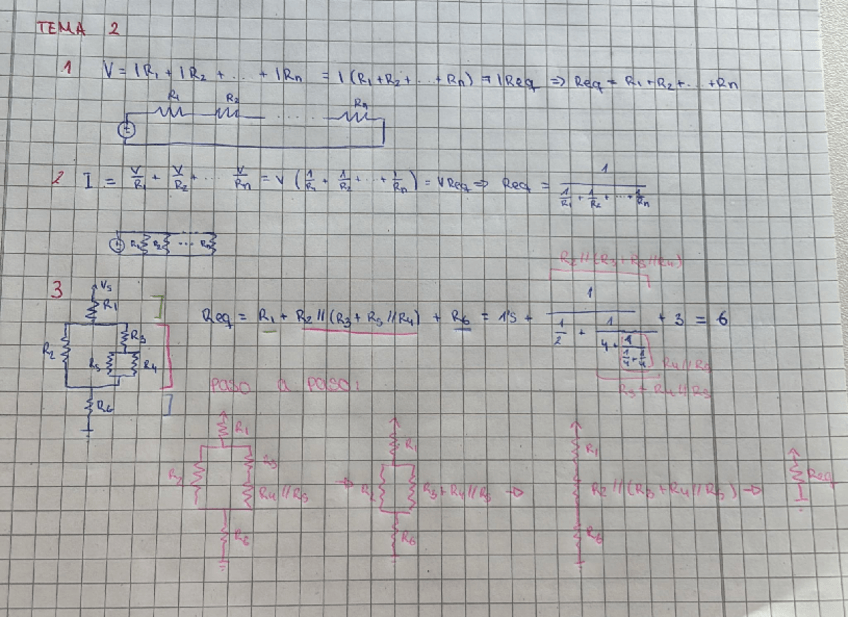 TEMA 2
1 V = IR₁ + IR₂ + ... + IRn = I (R₁+R₂+...+Rn) = IReq ⇒ Req = R₁+R₂+...+Rn
R₁ R₂ ..... Rn
2 I = V/R₁ + V/R₂ + ... V/Rn = V (1/R₁ + 1/R₂ + ... + 1/Rn) = V Req ⇒ Req = 1/(1/R₁ + 1/R₂ + ... + 1/Rn)
R₁ R₂ ... Rn
R₂//(R₃+R₅//R₄)
3 Vs
R₁
R₂ R₃
R₅ R₄
R₆
Req = R₁ + R₂//(R₃+R₅//R₄) + R₆ = 1'5 + 1/(1/2 + 1/(4+1/(1/4+1/4))) + 3 = 6
R₄//R₅
R₃+R₄//R₅
paso a paso:
R₁ R₁ R₁
R₂ R₃
R₄//R₅ → R₂ R₃+R₄//R₅ → R₂//(R₃+R₄//R₅) → Req
R₆ R₆